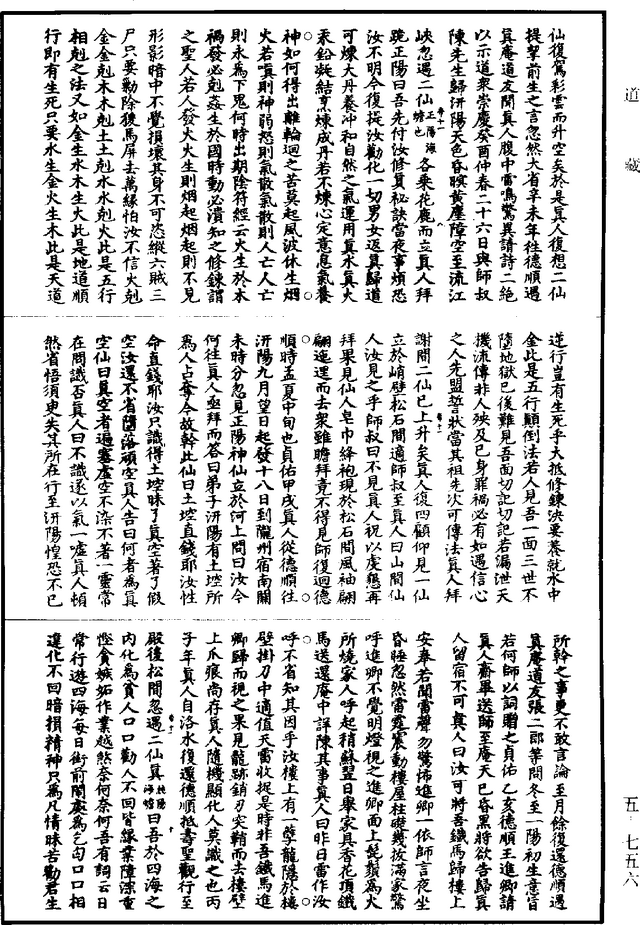 道藏
五‧七五六
仙復駕彩雲而升空矣於是眞人復想二仙
提挈前生之言忽然大省辛未年徃德順遇
眞庵道友聞眞人腹中雷鳴驚異請詩二絶
以示道衆崇慶癸酉仲春二十六日與師叔
陳先生歸汧陽天色昏暝黄塵障空至流江
峽忽遇二仙正陽海蟾也各乘花鹿而立眞人拜
跪正陽曰吾先付汝修眞秘訣當夜事煩恐
汝不明今復提汝勸化一切男女返眞歸道
可煉大丹養冲和自然之氣運用眞水眞火
汞鉛凝結烹煉成丹若不煉心定意息氣養
神如何得出離輪迴之苦莫起風波休生烟
火若嗔則神弱怒則氣散氣散則人亡人亡
則永爲下鬼何時出期陰符經云火生於木
禍發必剋姦生於國時動必潰知之修鍊謂
之聖人若人發火火生則烟起烟起則不見
形影暗中不覺損壞其身不可恣縱六賊三
尸只要勦除猿馬屏去萬緣怕汝不信火剋
金金剋木木剋土土剋水水剋火此是五行
相剋之法又如金生水水生木生火此是地道順
行即有生死只要水生金火生木此是天道
逆行豈有生死乎大抵修鍊決要養就水中
金此是五行顚倒法若人見吾一面三世不
墮地獄已後難見吾面切記切記若漏泄天
機流傳非人殃及已身罪禍必有如遇信心
之人先盟誓狀當其祖先次可傳法眞人拜
謝間二仙已上升矣眞人復四顧仰見一仙
立於峭壁松石間適師叔至眞人曰山間仙
人汝見之乎師叔曰不見眞人祝以虔懇再
拜果見仙人皂巾絳袍現於松石間風袖翩
翩迤邐而去衆雖瞻拜竟不得見師復迴德
順時孟夏中旬也貞佑甲戌眞人從德順徃
汧陽九月望日起發十八日到隴州宿南關
未時分忽見正陽神仙立於河上問曰汝今
何徃眞人亟拜而答曰弟子汧陽有土埪所
爲人占奪今故幹此仙曰土埪直錢耶汝性
命直錢耶汝只識得土埪昧了眞空著了假
空汝還不省墮落頑空眞人告曰何者爲眞
空仙曰眞空者遍塞虛空不染不著一靈常
在問識否眞人曰不識遂以氣一噓眞人頓
然省悟須臾失其所在行至汧陽惶恐不已
所幹之事更不敢言論至月餘復還德順遇
眞庵道友張二郎等問冬至一陽初生意旨
若何師以詞贈之貞佑乙亥德順王進卿請
眞人齋畢送師至庵天已昏黑將欲告歸眞
人留宿不可眞人曰汝可將吾鐵馬歸樓上
安奉若聞雷聲勿驚怖進卿一依師言夜坐
昏睡忽然雷霆震動樓屋柱礎幾拔滿家驚
呼進卿不覺明燈視之進卿面上髭鬚爲火
所燒家人呼起稍蘇翌日舉家具香花頂鐵
馬送還庵中詳陳其事眞人曰昨日雷作汝
呼不省知其因乎汝樓上有一孽龍隱於樓
壁掛刀中適值天雷收捉是時非吾鐵馬進
卿歸而視之果見龍跡銷刃突鞘而去樓壁
上爪痕尚存眞人隨機顯化人莫識之也丙
子年眞人自洛水復還德順抵壽聖觀行至
殿後松間忽遇二仙眞純陽海蟾曰吾於四海之
内化爲貧人口口勸人不回皆緣業障深重
慳貪嫉妬作業越然奈何奈何吾有詞云日
常行遊四海每日街前閙處爲乞匄口口相
違化不回暗損精神只爲凡情昧苦勸君生